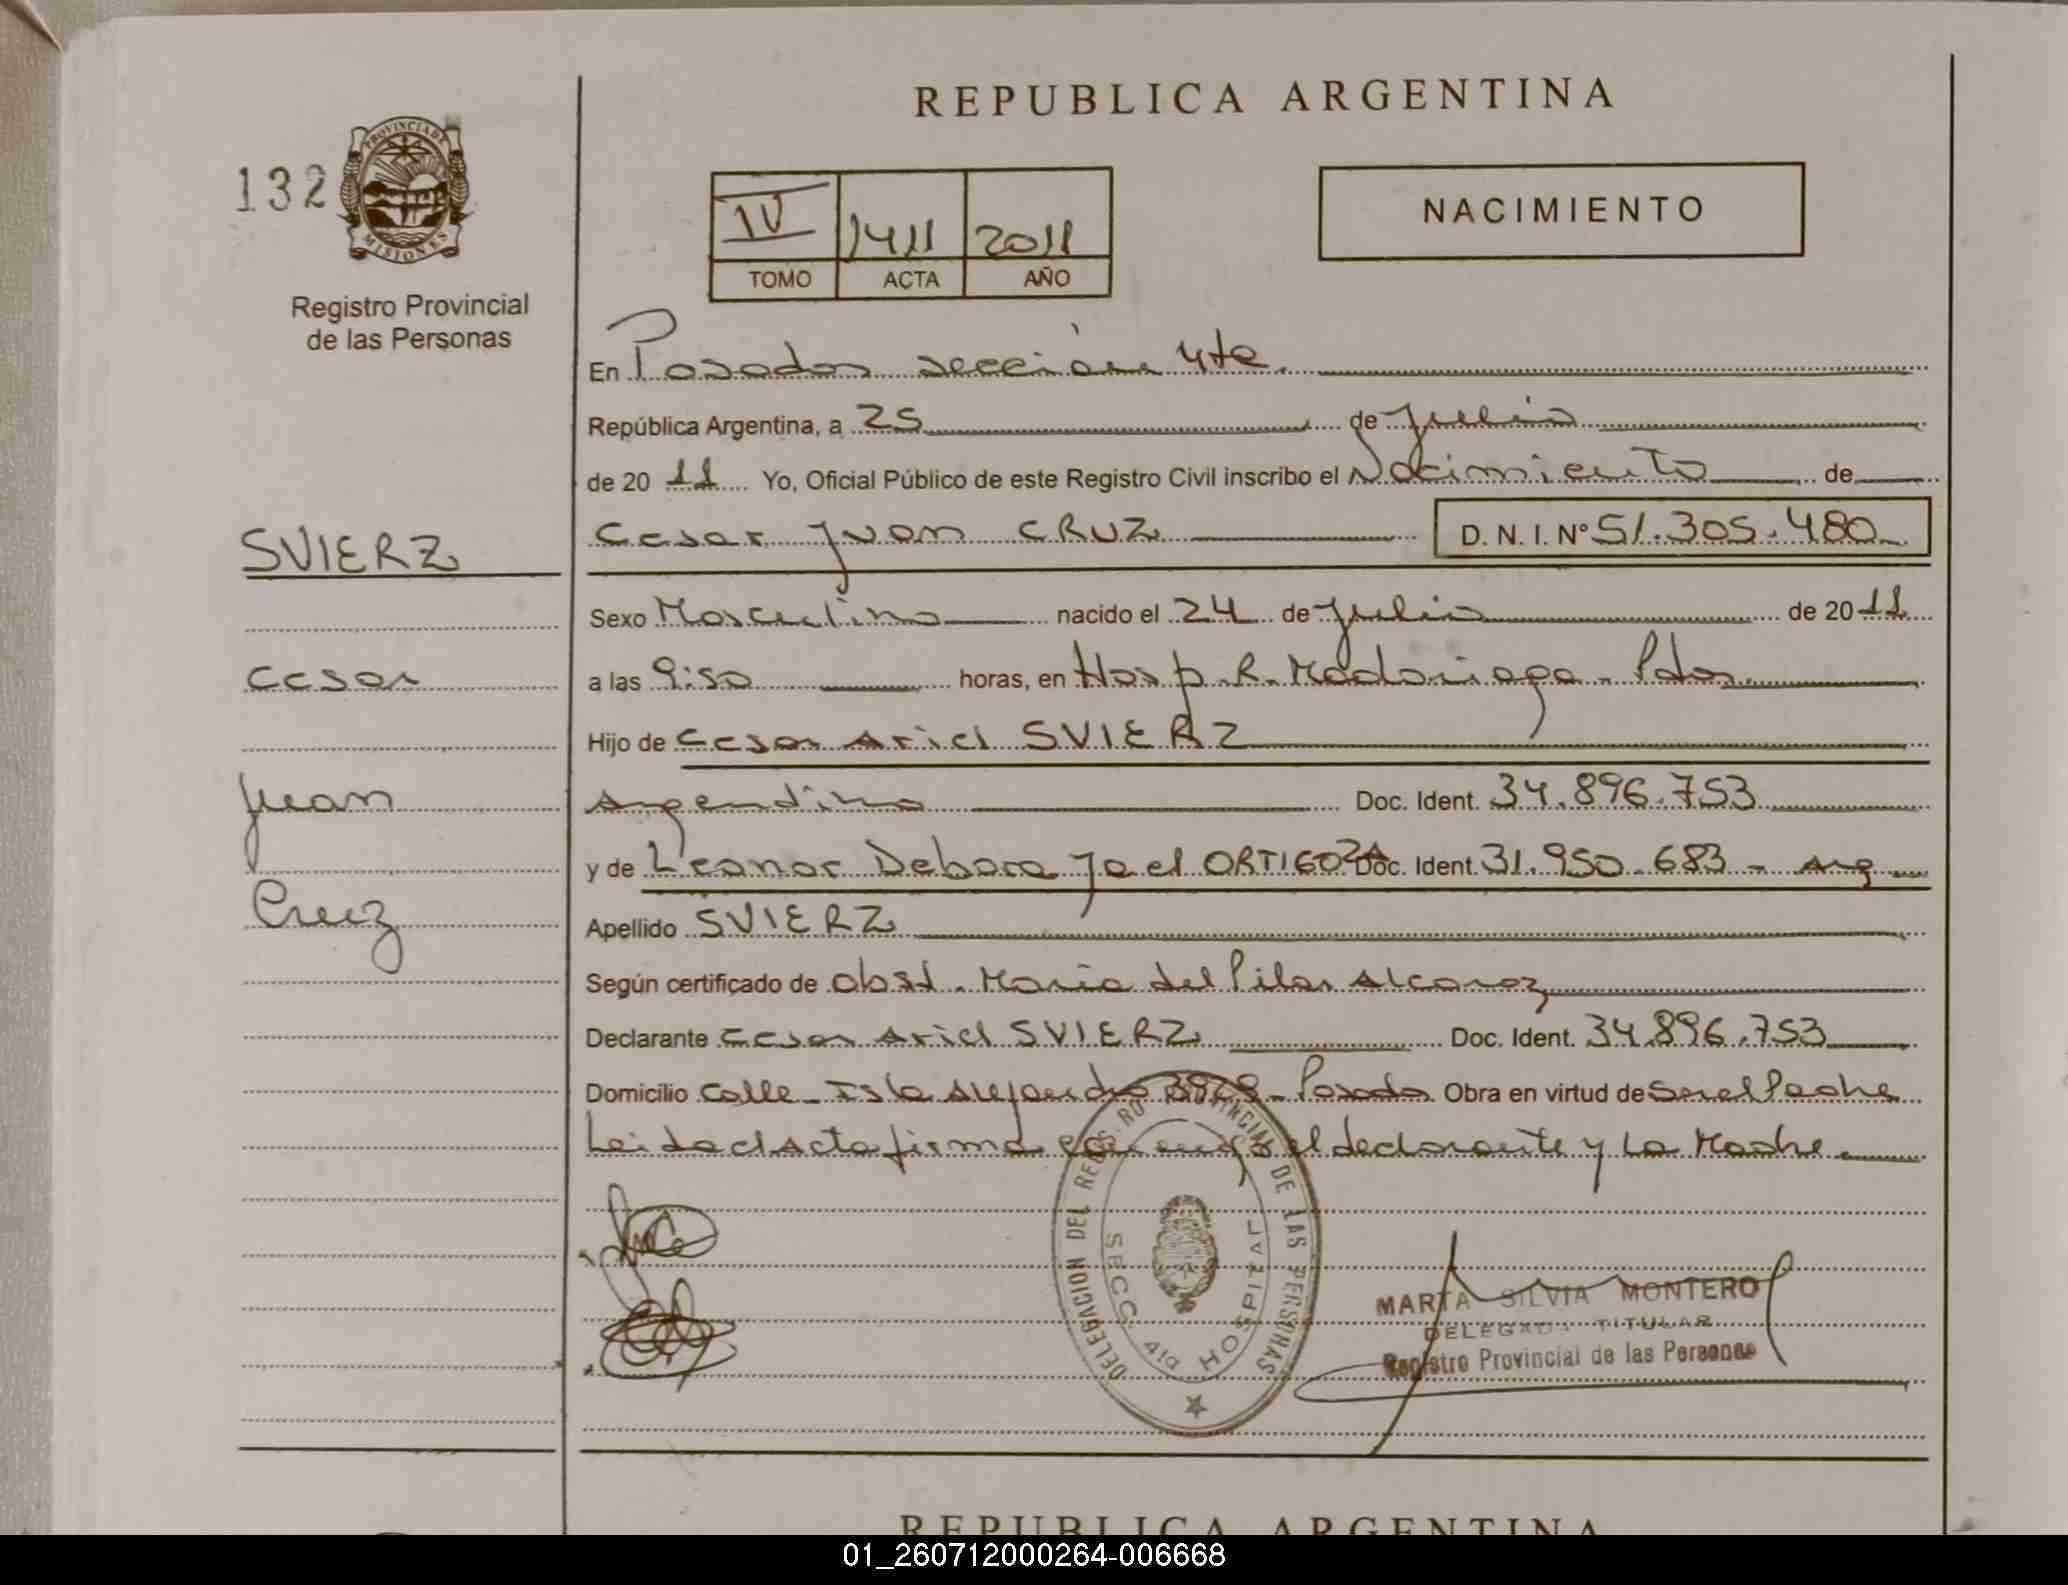 REPUBLICA ARGENTINA
132
PROVINCIA DE MISIONES
Registro Provincial
de las Personas
IV 1411 2011
TOMO ACTA AÑO
NACIMIENTO
En Posadas sección 4ta.
República Argentina, a 25 de Julio
de 20 11 Yo, Oficial Público de este Registro Civil inscribo el Nacimiento de
Cesar Juan CRUZ D. N. I. Nº 51.305.480
SVIERZ
Sexo Masculino nacido el 24 de Julio de 20 11
Cesar
a las 9:50 horas, en Hosp. R. Madariaga - Pdas.
Hijo de Cesar Ariel SVIERZ
Juan
Argentino Doc. Ident. 34.896.753
y de Leonor Debora Jael ORTIGOZA Doc. Ident. 31.950.683 - Arg
Cruz
Apellido SVIERZ
Según certificado de obst. Maria del Pilar Alcaraz
Declarante Cesar Ariel SVIERZ Doc. Ident. 34.896.753
Domicilio Calle - Isla Alejandro - Posadas Obra en virtud de Ser el Padre
Leida el Acta firma el declarante y La Madre
DELEGACION DEL REGISTRO PROVINCIAL DE LAS PERSONAS
SECC. 4ta HOSPITAL
MARTA SILVIA MONTERO
DELEGADA TITULAR
Registro Provincial de las Personas
REPUBLICA ARGENTINA
01_260712000264-006668